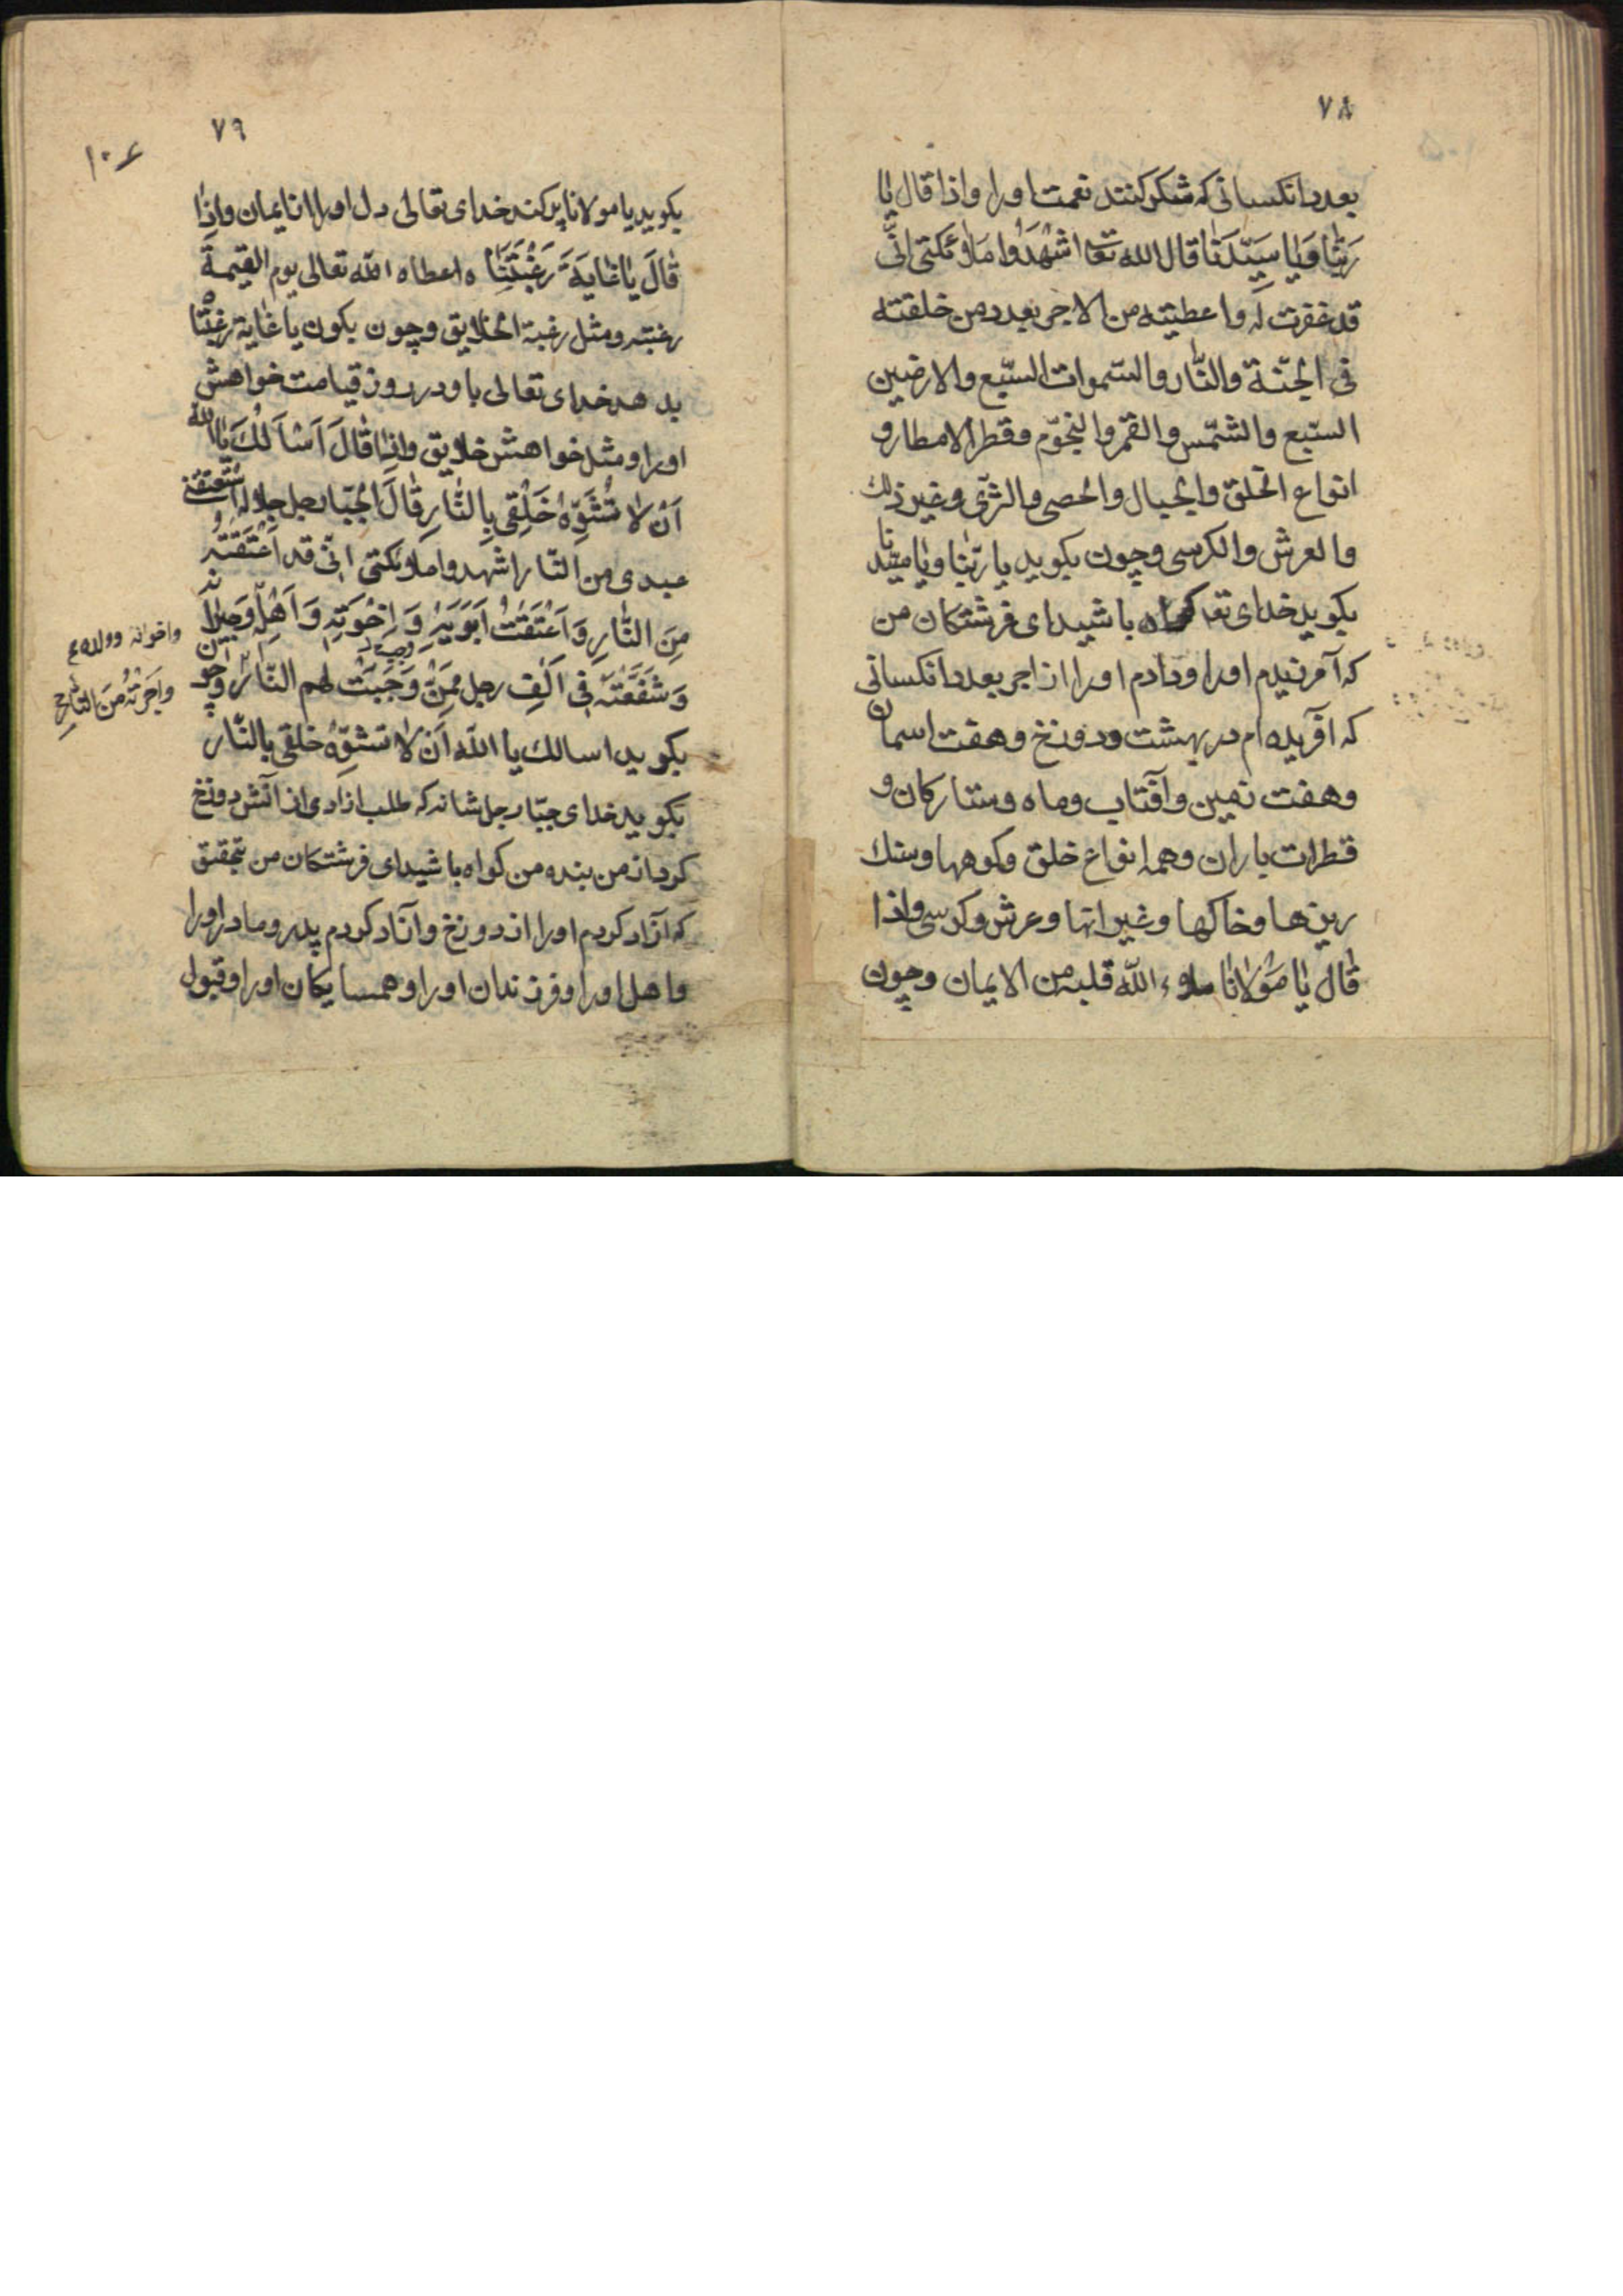 ٧٨
بعدد انکسانی که شکر کنند نعمت او را و اذا قال یا
رَبَّنَا وَیٰا سَیِّدَنَا قال الله تعا اشْهَدُوا مَلٰوئکتی انّی
قد غفرت لَه و اعطیته من الاجر بعدد من خلقته
فی الجنّة والنّار والسّموات السّبع والارضین
السّبع والشّمس والقمر والنجوّم وقطر الامطار و
انواع الخلق والجبال والحصی والثّری و غیر ذلک
والعرش والکرسی وچون بکوید یا ربّنا ویٰا سیّدنا
بکوید خدای تعا کواه باشید ای فرشتکان من
که آمرزیدم او را و دادم او را از اجر بعدد انکسانی
که آفریده ام در بهشت و دوزخ و هفت اسمان
و هفت زمین و آفتاب و ماه و ستارکان و
قطرات باران و همه انواع خلق و کوهها و سنک
ریزها و خاکها و غیر انها و عرش و کرسی و اذا
قٰال یٰا مَوْلانٰا ملاء الله قلبه من الایمان و چون
٧٩
١٠۶
بکوید یا مولانا پر کند خدای تعالی دل او را از ایمان و اِذٰا
قٰالَ یٰا غٰایَةَ رَغْبَتِنَا ه اعطاه الله تعالی یوم القیمة
رغبته و مثل رغبة الخلایق و چون بکوید یا غٰایة رغبتنا
بدهد خدای تعالی باو در روز قیامت خواهش
او را و مثل خواهش خلایق و اذٰا قٰالَ اَسْاَلُکَ یٰا الله
اَنْ لا تُشَوِّهَ خَلْقی بِالنّٰارِ قٰالَ الجبّار جل جلاله اسْتَعْتَقَنی
عبدی من النّار اشهدوا ملاوئکتی انّی قد اَعْتَقْتُهُ
مِنَ النّٰارِ وَ اَعْتَقْتُ اَبَوَیْهِ وَ اِخْوَتِهِ وَ اَهْلِهِ وَ جیرانه
واخوانه و ولده ع
وَ شَفَّعْتُهُ فی اَلْفِ رجل مِمَّنْ وَجَبَتْ لهم النّار و چون
واَجَرْتُهُ مِنَ النّارِ
بکوید اسالک یا الله اَنْ لا تشوّه خلقی بالنّار
بکوید خدای جبّار جل شانه که طلب ازادی از آتش دوزخ
کرد از من بنده من کواه باشید ای فرشتکان من بتحقیق
که آزاد کردم او را از دوزخ و آزاد کردم پدر و مادر او را
و اهل او را و فرزندان او را و همسایکان او را و قبول